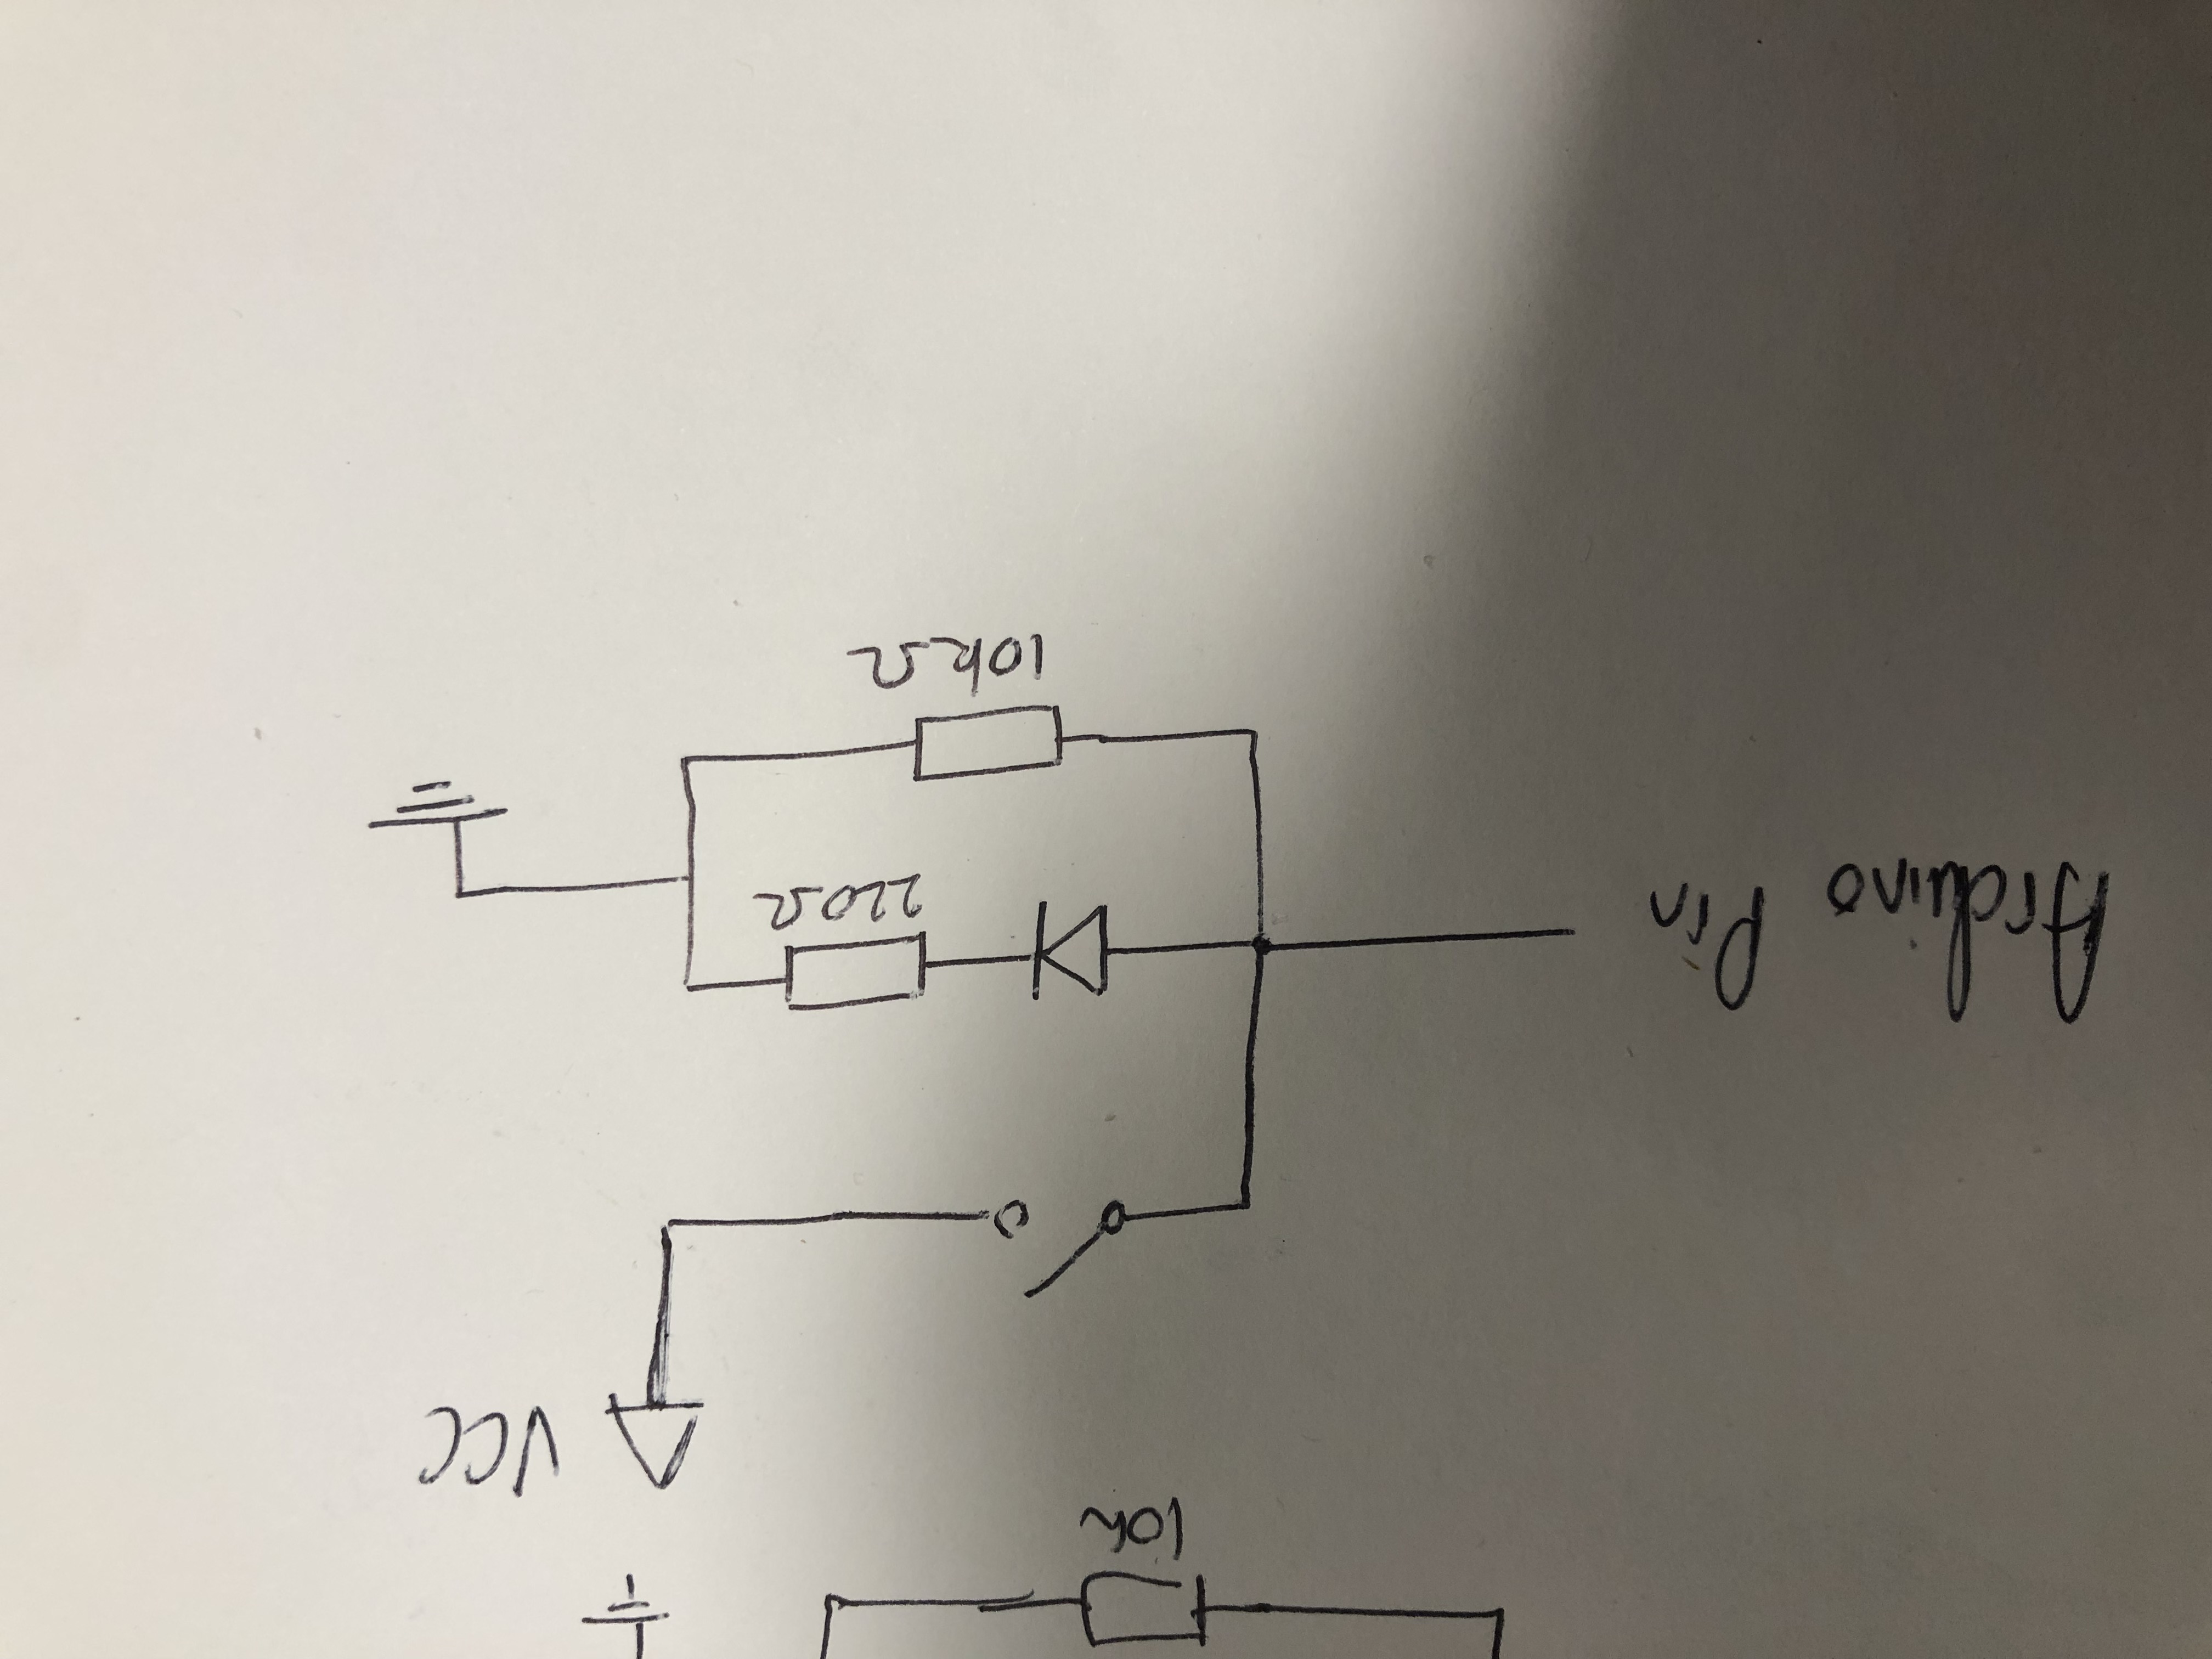 10k
VCC
Arduino Pin
220Ω
10kΩ